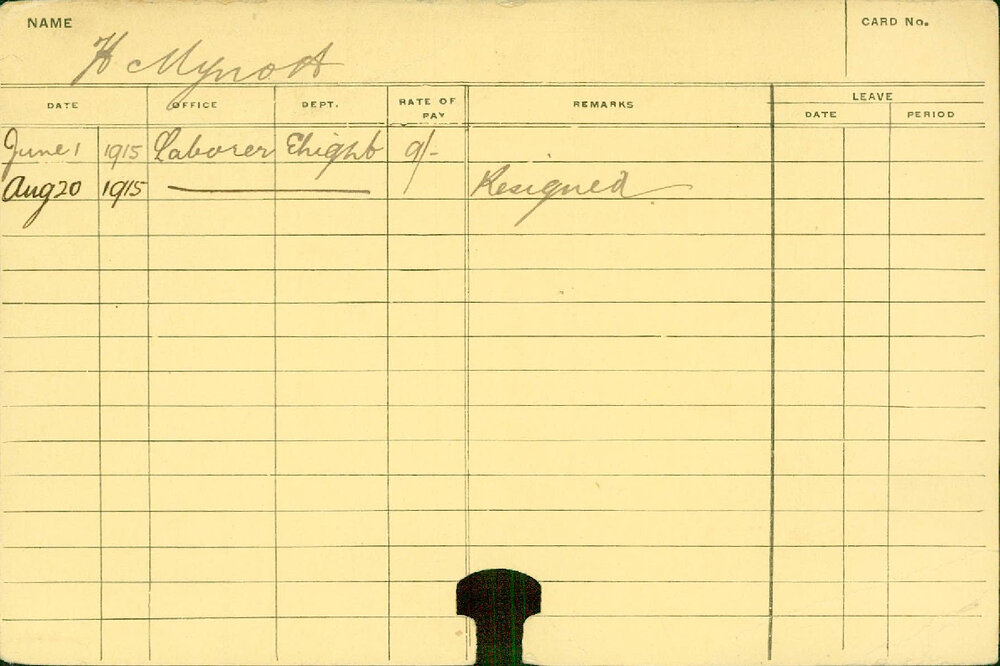 NAME
CARD No.
H Mynott
DATE OFFICE DEPT. RATE OF PAY REMARKS LEAVE
DATE PERIOD
June 1 1915 Laborer Ehight 9/-
Aug 20 1915 Resigned